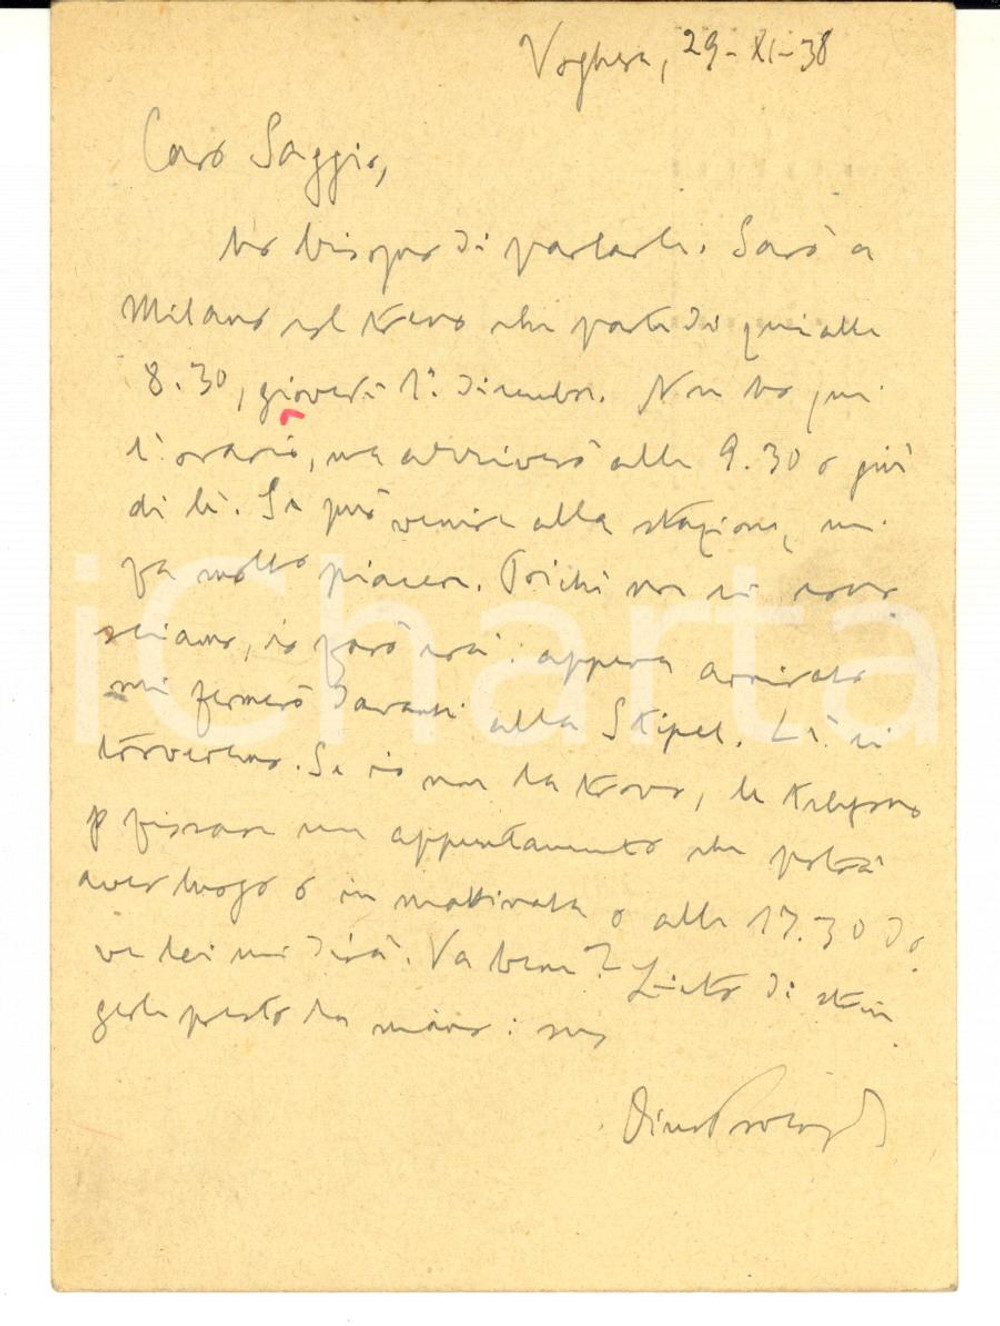 Voghera, 29-XI-38
Caro Saggio,
ho bisogno di parlarle. Sarò a
Milano col treno che parte di qui alle
8.30, giovedì 1° dicembre. Non ho qui
l'orario, ma arriverò alle 9.30 o giù
di lì. Se può venire alla stazione, mi
fa molto piacere. Poiché non ci cono
sciamo, io farò così: appena arrivato
mi fermerò davanti alla Stipel. Lì ci
troveremo. Se io non la trovo, le telefono
p fissare un appuntamento che potrà
aver luogo o in mattinata o alle 17.30 do
ve lei mi dirà. Va bene? Lieto di strin
gerle presto la mano: suo
Dino
iCharta